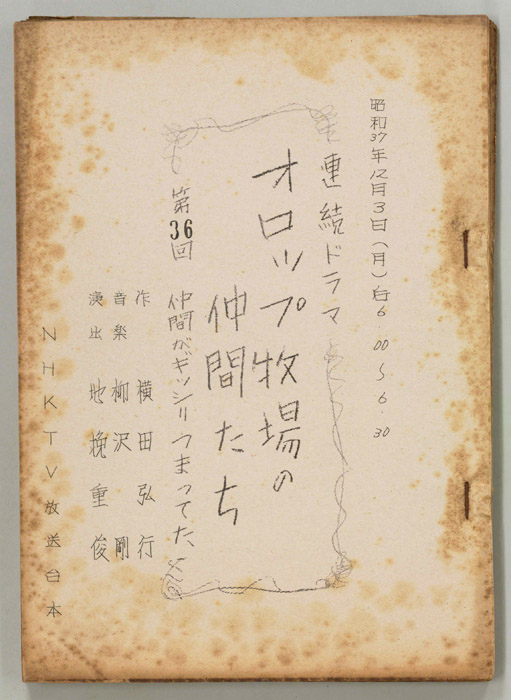 昭和37年12月3日（月）自6.00〜6.30
連続ドラマ
オロップ牧場の
仲間たち
第36回
仲間がギッシリつまってた、
作 横田弘行
音楽 柳沢剛
演出 地挽重俊
NHKTV放送台本